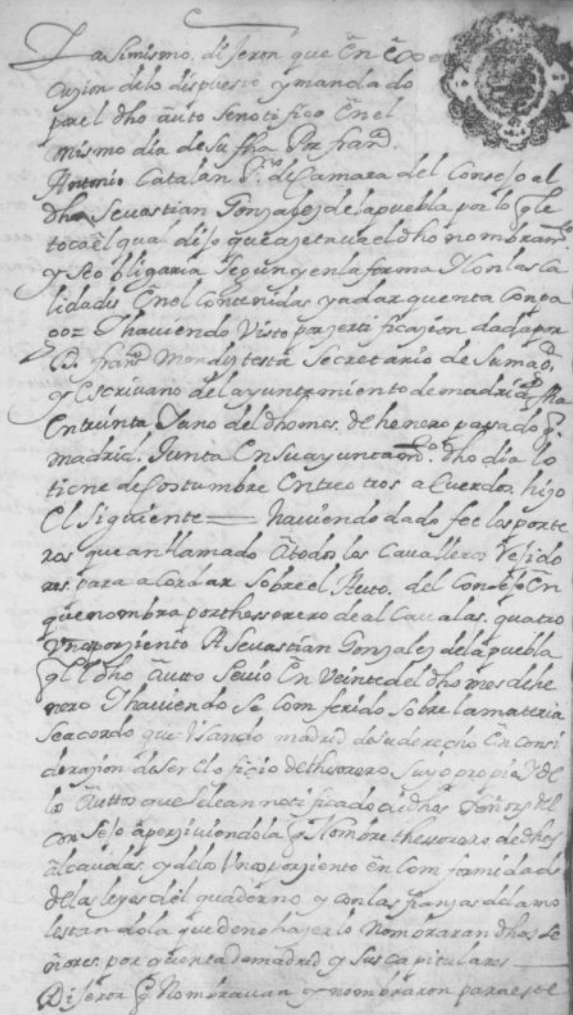 Y asimismo. dijeron que En Exe
cuzion delo dispuesto y mandado
por el dho auto se notifico En el
mismo dia de su fha Por fran.co
Antonio Catalan S.no de Camara del Consejo al
dho Sevastian Gonzalez de la puebla por lo q le
toca el qual dijo que azetava el dho nombram.to
y se obligaria segun y en la forma Y con las Ca
lidades En el Contenidas y a dar quenta Con pa
go= Y haviendo Visto por zertificazion dada por
D. fran.co Mendez testa Secretario de Su mag.d
y Escrivano del ayuntamiento de madrid su fha
En treinta Y uno del dho mes. de henero pasado q.
madrid. Junta En su ayuntam.to dho dia lo
tiene de Costumbre Entre otros aCuerdos. hizo
El siguiente= haviendo dado fee los porte
ros que an llamado a todos los Cavalleros Rejido
res. para aCordar sobre el Auto. del Consejo En
que nombra por thessorero de alCavalas. quatro
Unos por ziento A Sevastian Gonzalez de la puebla
q El dho autto Se vio En Veinte del dho mes de he
nero Y haviendo se Comferido sobre la materia
Se acordo que Usando madrid de su derecho En consi
derazion de ser El ofizio de thesorero suyo propio Y de
los auttos que se le an notificado de dhos señores del
Consejo aperziviendola q Nombre thessorero de dhas
alcavalas. y de los Unos por ziento En Comformidad
de las leyes del quaderno y con las fianzas
que de no hazerlo Nombraran dhos se
ñores. por quenta de madrid y sus Capitulares
Dijeron q Nombravan y nombraron para este